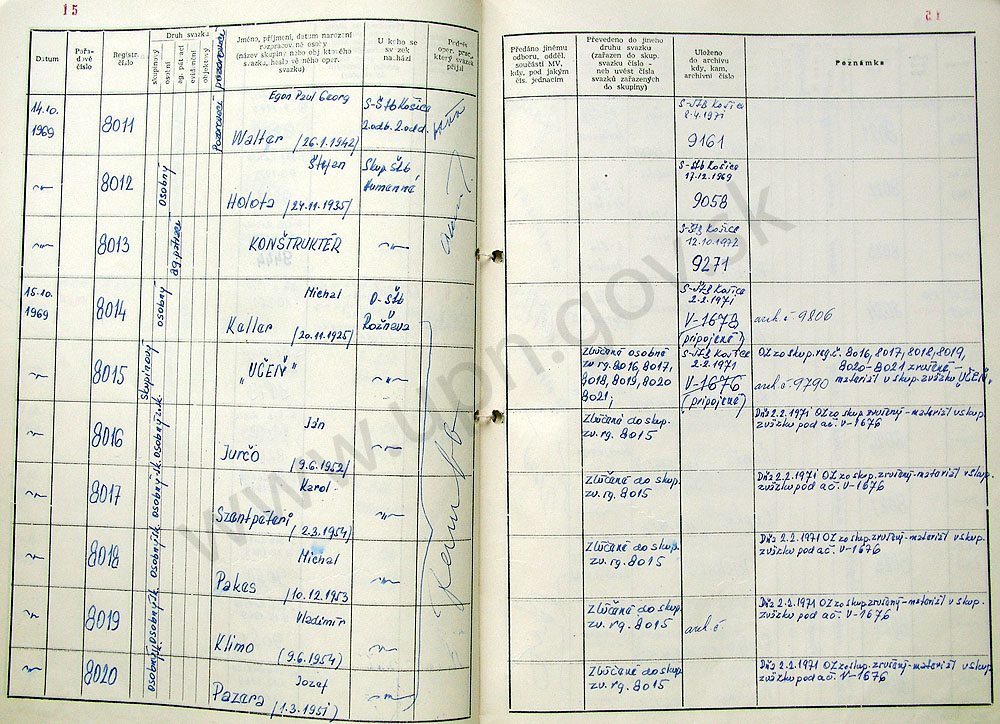 15
51
Datum
Pořadové číslo
Registr. číslo
Druh svazku
skupinový
osobní
ag. pátrací
evidenční
objektový
pozorovací
Jméno, příjmení, datum narození
rozpracované osoby
(název skupiny nebo obj. ktového
svazku, heslo vě ného oper.
svazku)
U koho se
sv zek
nachází
Podpis
oper. prac.
který svazek
přijal
Předáno jinému
odboru, odděl.
součásti MV,
kdy, pod jakým
čís. jednacím
Převedeno do jiného
druhu svazku
(zařazen do skup.
svazku číslo -
neb uvést čísla
svazků zařazených
do skupiny)
Uloženo
do archivu
kdy, kam,
archivní číslo
Poznámka
14.10.
1969
8011
Pozorovací
Egon Paul Georg
Walter (26.1.1942)
S-ŠtB Košice
2.odb. 2.odd.
S-ŠtB Košice
2.4.1971
9161
8012
osobný
Štefan
Holota (24.11.1935)
Skup. ŠtB
Humenné
S-ŠtB Košice
17.12.1969
9058
8013
ag. pátrací
KONŠTRUKTÉR
S-ŠtB Košice
12.10.1972
9271
15.10.
1969
8014
osobný
Michal
Kallar (20.11.1925)
O-ŠtB
Rožňava
S-ŠtB Košice
2.2.1971
V-1678
(pripojené)
arch. č. 9806
8015
Skupinový
„UČEŇ"
Zlúčené osobné
zv. rg. 8016, 8017,
8018, 8019, 8020
8021;
S-ŠtB Košice
2.2.1971
V-1676
(pripojené)
OZ zo skup. reg. č. 8016, 8017, 8018, 8019,
8020-8021 zrušené -
arch. č. 9790 - materiál v skup. zväzku „UČEŇ"
8016
osobný sk.
Ján
Jurčo (9.6.1952)
Zlúčené do skup.
zv. rg. 8015
Dňa 2.2.1971 OZ zo skup. zrušený - materiál v skup.
zväzku pod a.č. V-1676
8017
osobný sk.
Karol
Szentpéteri (2.3.1954)
Zlúčené do skup.
zv. rg. 8015
Dňa 2.2.1971 OZ zo skup. zrušený - materiál v skup.
zväzku pod a.č. V-1676
8018
osobný sk.
Michal
Pakes (10.12.1953
Zlúčené do skup.
zv. rg. 8015
Dňa 2.2.1971 OZ zo skup. zrušený - materiál v skup.
zväzku pod a.č. V-1676
8019
osobný sk.
Vladimír
Klimo (9.6.1954)
Zlúčené do skup.
zv. rg. 8015
arch. č.
Dňa 2.2.1971 OZ zo skup. zrušený - materiál v skup.
zväzku pod a.č. V-1676
8020
osobný sk.
Jozef
Pazara (1.3.1951)
Zlúčené do skup.
zv. rg. 8015
Dňa 2.2.1971 OZ zo skup. zrušený - materiál v skup.
zväzku pod a.č. V-1676
www.upn.gov.sk